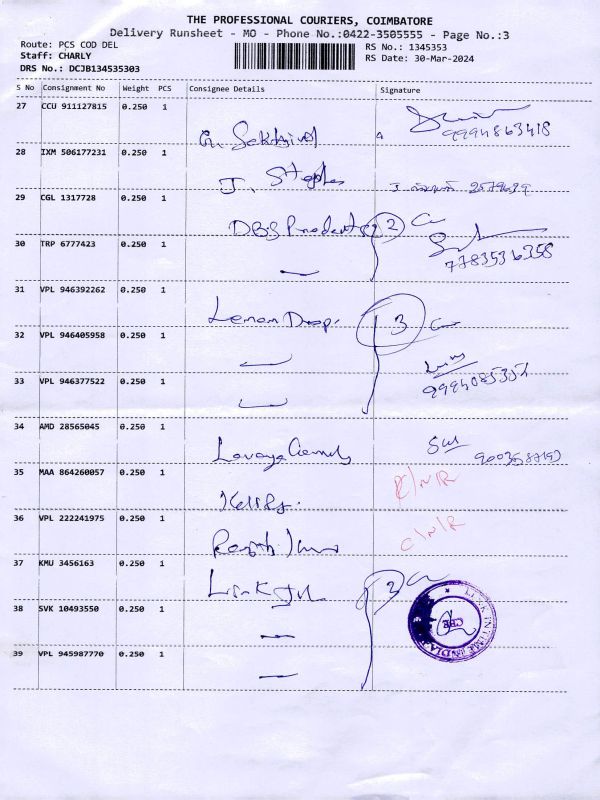 THE PROFESSIONAL COURIERS, COIMBATORE
Delivery Runsheet - MO - Phone No.:0422-3505555 - Page No.:3
Route: PCS COD DEL
RS No.: 1345353
Staff: CHARLY
RS Date: 30-Mar-2024
DRS No.: DCJB134535303
S No Consignment No Weight PCS Consignee Details Signature
27 CCU 911127815 0.250 1
9994863418
28 IXM 506177231 0.250 1
J.
29 CGL 1317728 0.250 1
DBS Products 2
30 TRP 6777423 0.250 1
7783536358
31 VPL 946392262 0.250 1
Lemon Drop. 3
32 VPL 946405958 0.250 1
33 VPL 946377522 0.250 1
34 AMD 28565045 0.250 1
35 MAA 864260057 0.250 1
C/N/R
36 VPL 222241975 0.250 1
C/N/R
37 KMU 3456163 0.250 1
Link 3
38 SVK 10493550 0.250 1
LINK INTIME INDIA
CBE
39 VPL 945987770 0.250 1